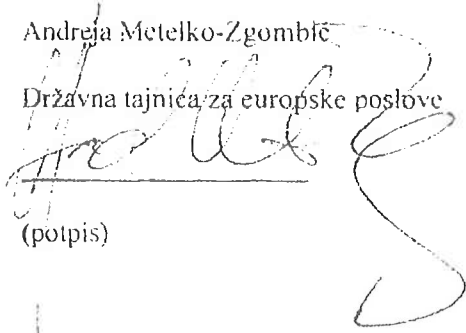 Andreja Metelko-Zgombić
Državna tajnica za europske poslove
(potpis)